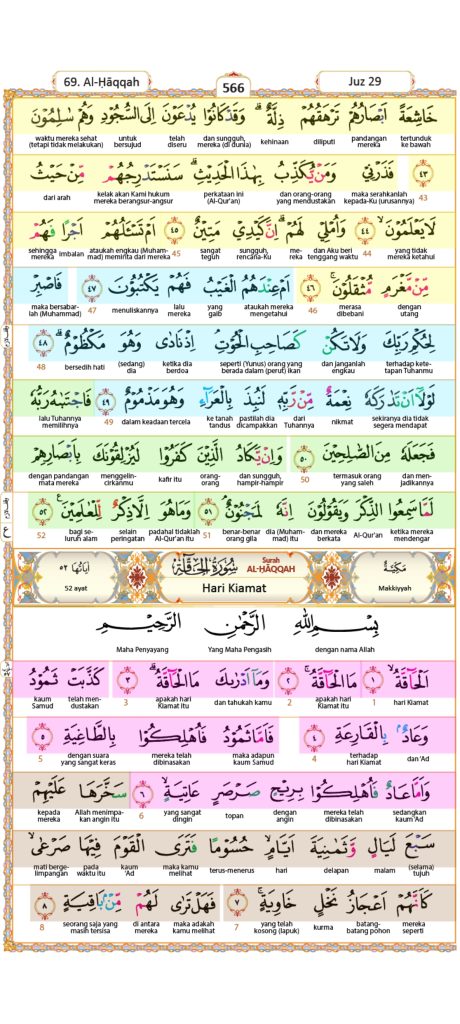 69. Al-Ḥāqqah
566
Juz 29
خَاشِعَةً اَبْصَارُهُمْ تَرْهَقُهُمْ ذِلَّةٌ ۗوَقَدْ كَانُوْا يُدْعَوْنَ اِلَى السُّجُوْدِ وَهُمْ سٰلِمُوْنَ
waktu mereka sehat untuk telah dan sungguh, kehinaan diliputi pandangan tertunduk
(tetapi tidak melakukan) bersujud diseru mereka (di dunia) mereka ke bawah
٤٣ فَذَرْنِيْ وَمَنْ يُّكَذِّبُ بِهٰذَا الْحَدِيْثِۗ سَنَسْتَدْرِجُهُمْ مِّنْ حَيْثُ
dari arah kelak akan Kami hukum perkataan ini dan orang-orang maka serahkanlah 43
mereka berangsur-angsur (Al-Qur'an) yang mendustakan kepada-Ku (urusannya)
لَا يَعْلَمُوْنَۙ ٤٤ وَاُمْلِيْ لَهُمْۗ اِنَّ كَيْدِيْ مَتِيْنٌ ٤٥ اَمْ تَسْـَٔلُهُمْ اَجْرًا فَهُمْ
sehingga imbalan ataukah engkau (Muham- 45 sangat sungguh, me- dan Aku beri 44 yang tidak
mereka mad) meminta dari mereka teguh rencana-Ku reka tenggang waktu mereka ketahui
مِّنْ مَّغْرَمٍ مُّثْقَلُوْنَۚ ٤٦ اَمْ عِنْدَهُمُ الْغَيْبُ فَهُمْ يَكْتُبُوْنَ ٤٧ فَاصْبِرْ
maka bersabar- 47 menuliskannya lalu yang ataukah mereka 46 merasa dengan
lah (Muhammad) mereka gaib mengetahui dibebani utang
لِحُكْمِ رَبِّكَ وَلَا تَكُنْ كَصَاحِبِ الْحُوْتِۘ اِذْ نَادٰى وَهُوَ مَكْظُوْمٌۗ ٤٨
48 bersedih hati (sedang) ketika dia seperti (Yunus) orang yang dan janganlah terhadap kete-
dia berdoa berada dalam (perut) ikan engkau tapan Tuhanmu
لَوْلَآ اَنْ تَدٰرَكَهٗ نِعْمَةٌ مِّنْ رَّبِّهٖ لَنُبِذَ بِالْعَرَاۤءِ وَهُوَ مَذْمُوْمٌ ٤٩ فَاجْتَبٰىهُ رَبُّهٗ
lalu Tuhannya 49 dalam keadaan tercela ke tanah pastilah dia dari nikmat sekiranya dia tidak
memilihnya tandus dicampakkan Tuhannya segera mendapat
فَجَعَلَهٗ مِنَ الصّٰلِحِيْنَ ٥٠ وَاِنْ يَّكَادُ الَّذِيْنَ كَفَرُوْا لَيُزْلِقُوْنَكَ بِاَبْصَارِهِمْ
dengan pandangan mengge- kafir itu orang- dan sungguh, 50 termasuk orang dan men-
mata mereka lincirkanmu orang hampir-hampir yang saleh jadikannya
لَمَّا سَمِعُوا الذِّكْرَ وَيَقُوْلُوْنَ اِنَّهٗ لَمَجْنُوْنٌ ۘ ٥١ وَمَا هُوَ اِلَّا ذِكْرٌ لِّلْعٰلَمِيْنَ ࣖ ٥٢
52 bagi se- selain padahal tidaklah 51 benar-benar dia (Muha- dan mereka Al-Qur'an ketika mereka
luruh alam peringatan Al-Qur'an itu orang gila mad) itu berkata mendengar
اٰيَاتُهَا ٥٢ سُوْرَةُ الْحَاۤقَّةِ Surah AL-ḤĀQQAH مَكِّيَّةٌ
52 ayat Hari Kiamat Makkiyyah
بِسْمِ اللّٰهِ الرَّحْمٰنِ الرَّحِيْمِ
Maha Penyayang Yang Maha Pengasih dengan nama Allah
اَلْحَاۤقَّةُۙ ١ مَا الْحَاۤقَّةُ ۚ ٢ وَمَآ اَدْرٰىكَ مَا الْحَاۤقَّةُ ۗ ٣ كَذَّبَتْ ثَمُوْدُ
kaum telah men- 3 apakah hari dan tahukah kamu 2 apakah hari 1 hari Kiamat
Samud dustakan Kiamat itu Kiamat itu
وَعَادٌ ۢبِالْقَارِعَةِ ٤ فَاَمَّا ثَمُوْدُ فَاُهْلِكُوْا بِالطَّاغِيَةِ ٥
5 dengan suara mereka telah maka adapun 4 terhadap dan 'Ad
yang sangat keras dibinasakan kaum Samud hari Kiamat
وَاَمَّا عَادٌ فَاُهْلِكُوْا بِرِيْحٍ صَرْصَرٍ عَاتِيَةٍۙ ٦ سَخَّرَهَا عَلَيْهِمْ
kepada Allah menimpa- 6 yang sangat topan dengan mereka telah sedangkan
mereka kan angin itu dingin angin dibinasakan kaum 'Ad
سَبْعَ لَيَالٍ وَّثَمٰنِيَةَ اَيَّامٍۙ حُسُوْمًا فَتَرَى الْقَوْمَ فِيْهَا صَرْعٰىۙ
mati berge- pada kaum maka kamu terus-menerus hari delapan malam (selama)
limpangan waktu itu 'Ad melihat tujuh
كَاَنَّهُمْ اَعْجَازُ نَخْلٍ خَاوِيَةٍۚ ٧ فَهَلْ تَرٰى لَهُمْ مِّنْۢ بَاقِيَةٍ ٨
8 seorang saja yang di antara maka adakah 7 yang telah kurma batang- mereka
masih tersisa mereka kamu melihat kosong (lapuk) batang pohon seperti